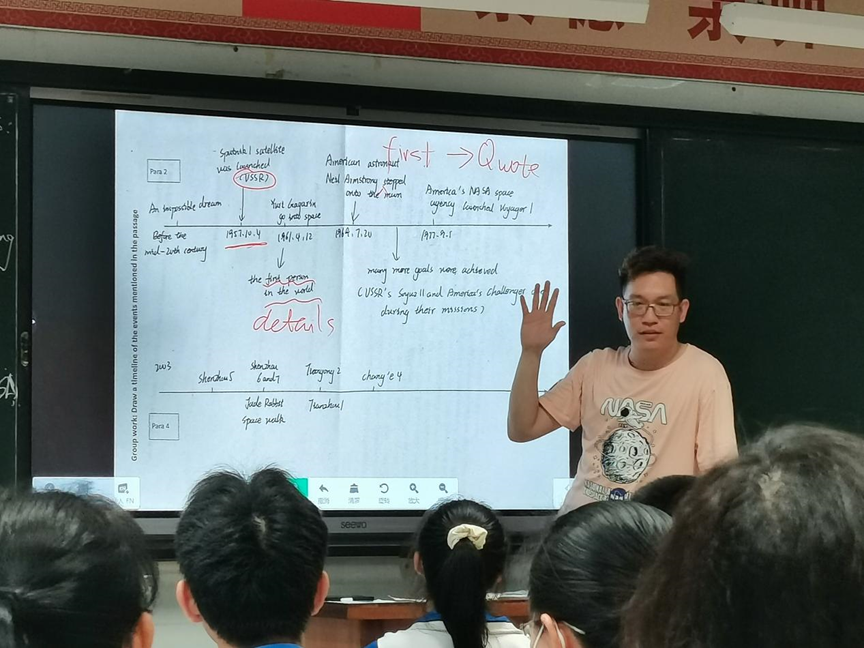 Group work: Draw a timeline of the events mentioned in the passage
Para 2
Sputnik 1 satellite
was launched
(USSR)
American astronaut
Neil Armstrong stepped
onto the
first → Quote
America's NASA space
agency launched Voyager 1
An impossible dream
Yuri Gagarin
go into space
Before the
mid-20th century
1957.10.4
1961.4.12
1969.7.20
1977.9.5
the first person
in the world
details
many more goals were achieved
(USSR's II and America's Challenger
during their missions)
2003
Shenzhou 5
Shenzhou
6 and 7
Tiangong 2
Chang'e 4
Para 4
Jade Rabbit
space walk
Tianzhou 1
NASA
seewo